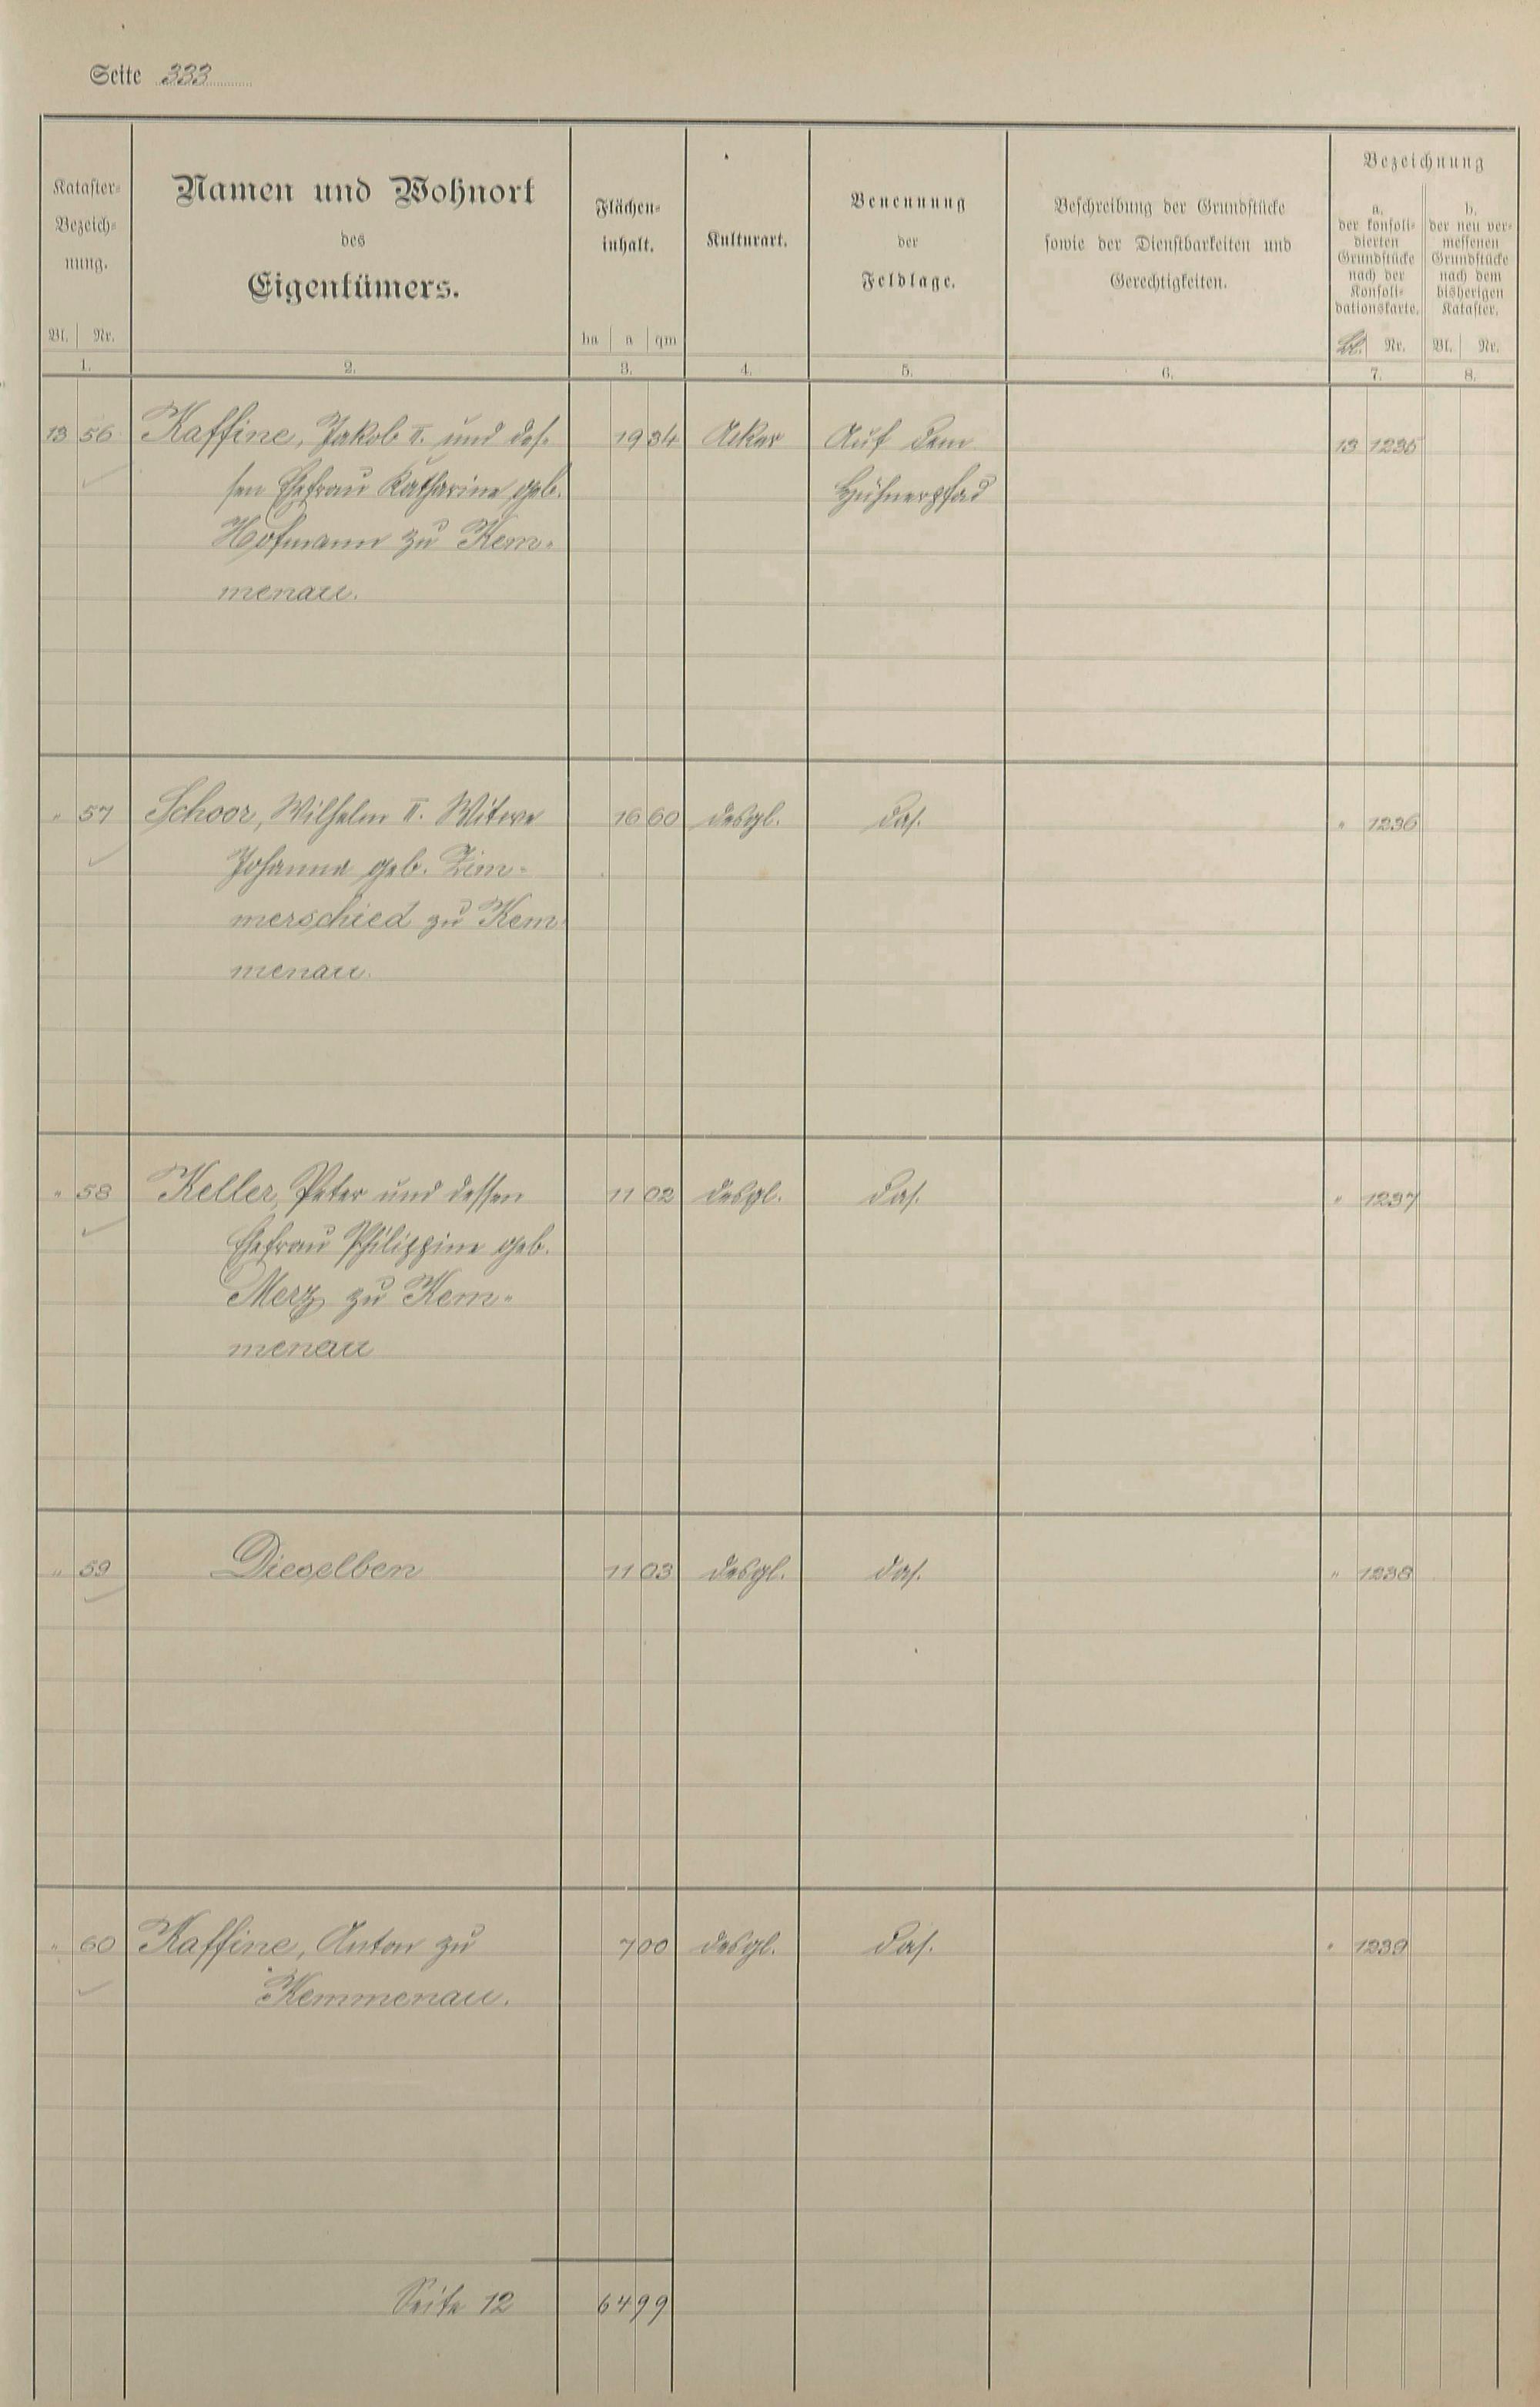 Seite 333
Kataster-
Bezeich-
nung.
Bl. Nr.
1.
Namen und Wohnort
des
Eigentümers.
2.
Flächen-
inhalt.
ha a qm
3.
Kulturart.
4.
Benennung
der
Feldlage.
5.
Beschreibung der Grundstücke
sowie der Dienstbarkeiten und
Gerechtigkeiten.
6.
Bezeichnung
a.
der konsoli-
dierten
Grundstücke
nach der
Konsoli-
dationskarte.
Bl. Nr.
7.
b.
der neu ver-
messenen
Grundstücke
nach dem
bisherigen
Kataster.
Bl. Nr.
8.
13 56 Kaffine, Jakob II. und des- 19 34 Acker Auf dem 13 1235
sen Ehefrau Katharine geb. Hühnerpfad
Hofmann zu Kem-
menau.
" 57 Schoor, Wilhelm II. Witwe 16 60 desgl. das. " 1236
Johanna geb. Zim-
merschied zu Kem-
menau.
" 58 Keller, Peter und dessen 11 02 desgl. das. " 1237
Ehefrau Philippine geb.
Merz zu Kem-
menau
" 59 Dieselben 11 03 desgl. das. " 1238
" 60 Kaffine, Anton zu 7 00 desgl. das. " 1239
Kemmenau.
Seite 12 64 99